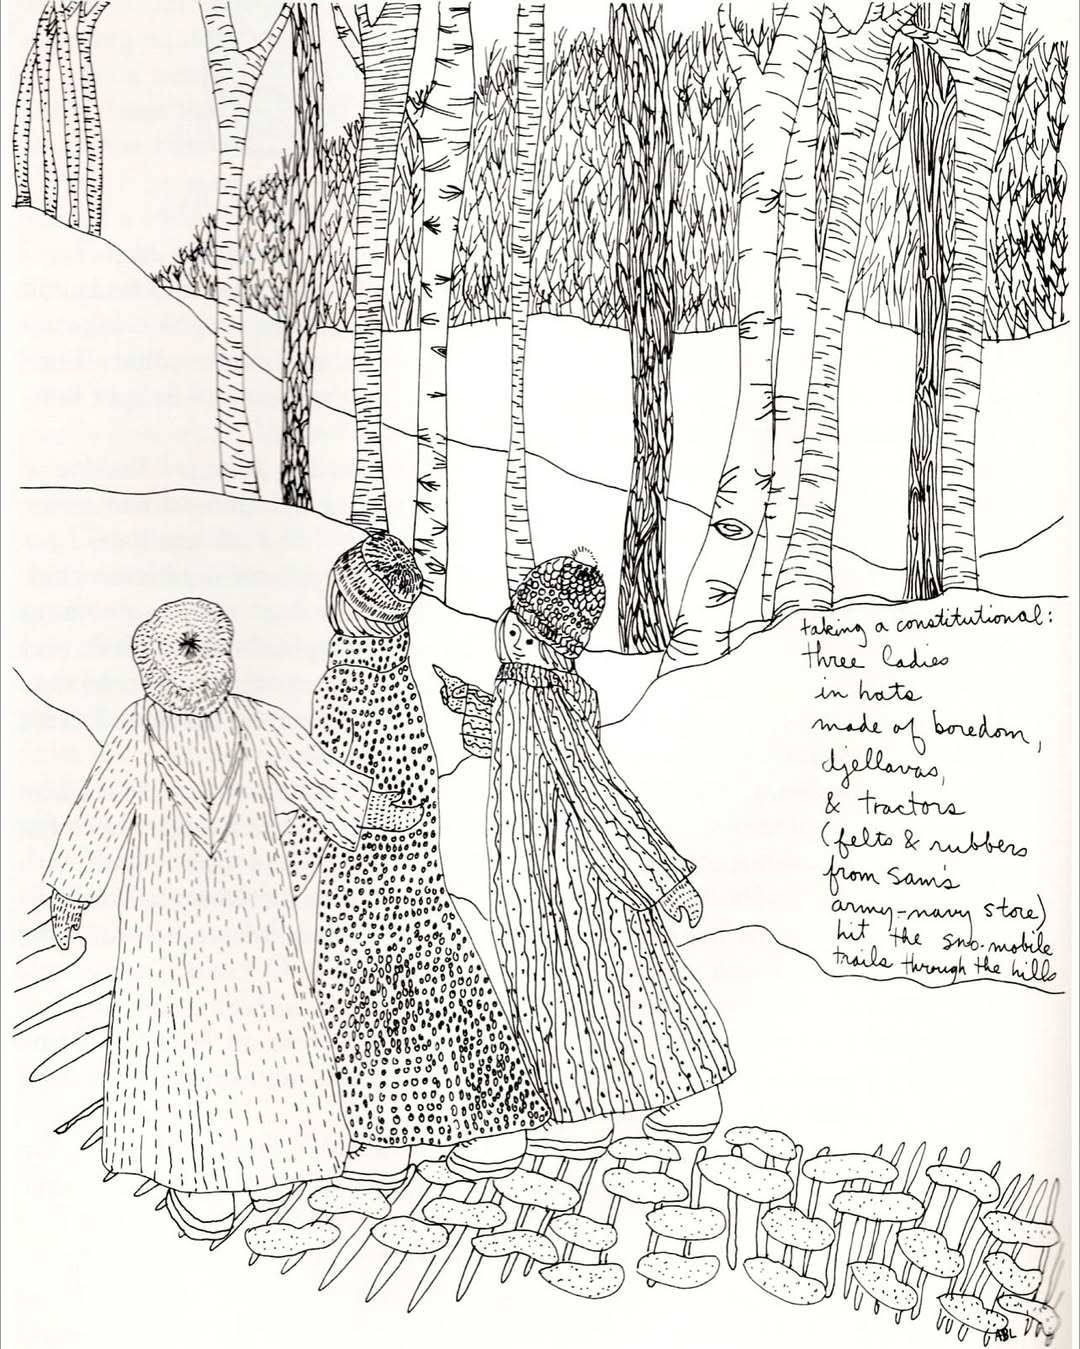 taking a constitutional:
three ladies
in hats
made of boredom,
djellavas,
& tractors
(felts & rubbers
from sam's
army-navy store)
hit the sno-mobile
trails through the hills
ABL